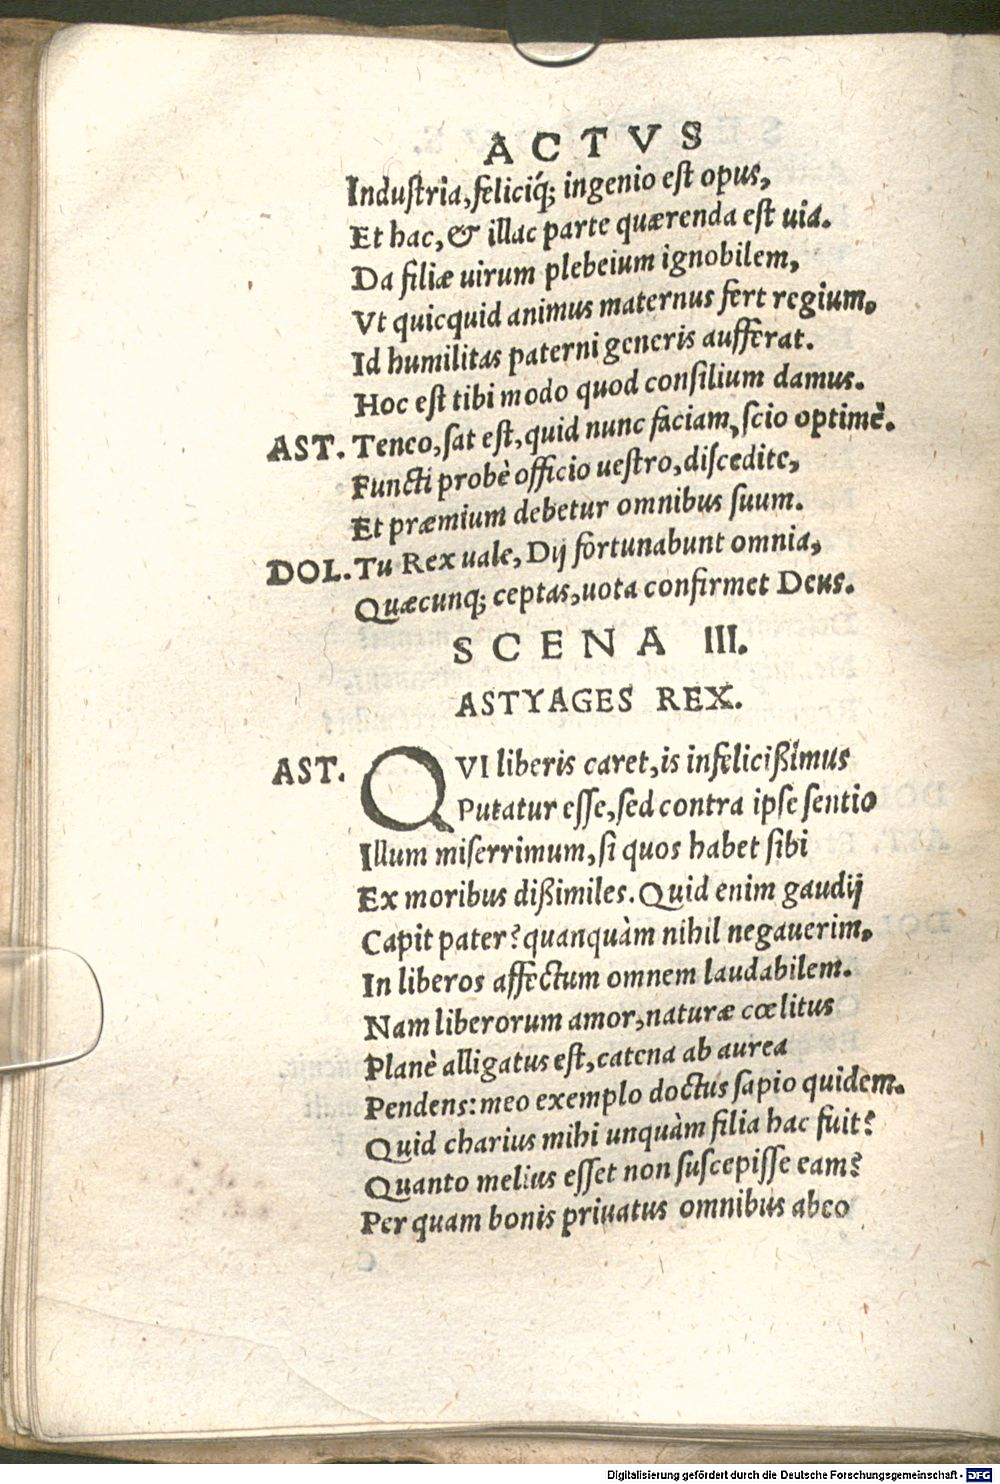 ACTVS
Induſtria, feliciq́; ingenio eſt opus,
Et hac, & illac parte quærenda eſt uia.
Da filiæ uirum plebeium ignobilem,
Vt quicquid animus maternus fert regium,
Id humilitas paterni generis aufferat.
Hoc eſt tibi modo quod conſilium damus.
AST. Teneo, ſat eſt, quid nunc faciam, ſcio optimè.
Functi probè officio ueſtro, diſcedite,
Et præmium debetur omnibus ſuum.
DOL. Tu Rex uale, Dij fortunabunt omnia,
Quæcunq; ceptas, uota confirmet Deus.
SCENA III.
ASTYAGES REX.
AST. QVI liberis caret, is infelicißimus
Putatur eſſe, ſed contra ipſe ſentio
Illum miſerrimum, ſi quos habet ſibi
Ex moribus dißimiles. Quid enim gaudij
Capit pater? quanquàm nihil negauerim,
In liberos affectum omnem laudabilem.
Nam liberorum amor, naturæ cœlitus
Planè alligatus eſt, catena ab aurea
Pendens: meo exemplo doctus ſapio quidem.
Quid charius mihi unquàm filia hac fuit?
Quanto melius eſſet non ſuſcepiſſe eam?
Per quam bonis priuatus omnibus abeo
Digitalisierung gefördert durch die Deutsche Forschungsgemeinschaft - DFG